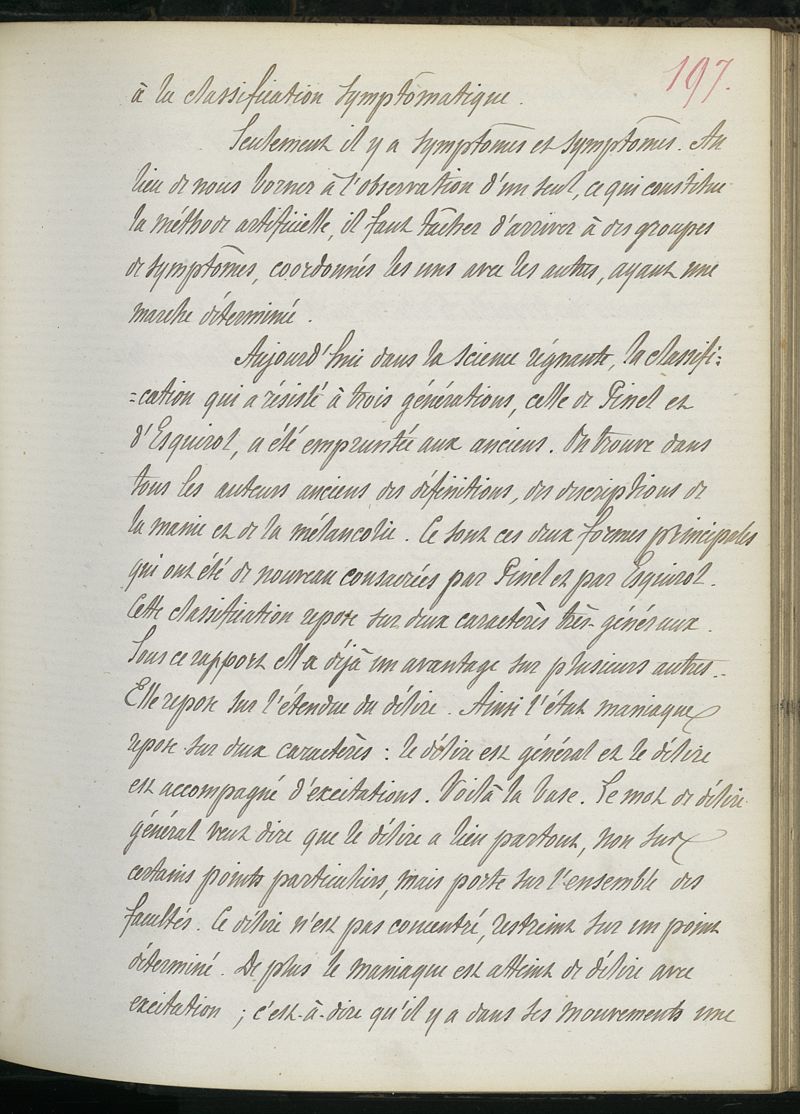 197.
à la classification symptomatique.
Seulement il y a symptômes et symptômes. Au
lieu de nous borner à l'observation d'un seul, ce qui constitue
la méthode artificielle, il faut tâcher d'arriver à des groupes
de symptômes, coordonnés les uns avec les autres, ayant une
marche déterminée.
Aujourd'hui dans la science régnante, la classifi=
=cation qui a résisté à trois générations, celle de Pinel et
d'Esquirol, a été empruntée aux anciens. On trouve dans
tous les auteurs anciens des définitions, des descriptions de
la manie et de la mélancolie. Ce sont ces deux formes principales
qui ont été de nouveau consacrées par Pinel et par Esquirol.
Cette classification repose sur deux caractères très-généraux.
Sous ce rapport elle a déjà un avantage sur plusieurs autres.
Elle repose sur l'étendue du délire. Ainsi l'état maniaque
repose sur deux caractères : le délire est général et le délire
est accompagné d'excitations. Voilà la base. Le mot de délire
général veut dire que le délire a lieu partout, non sur
certains points particuliers, mais porte sur l'ensemble des
facultés. Ce délire n'est pas concentré, restreint sur un point
déterminé. De plus le maniaque est atteint de délire avec
excitation ; c'est-à-dire qu'il y a dans ses mouvements une